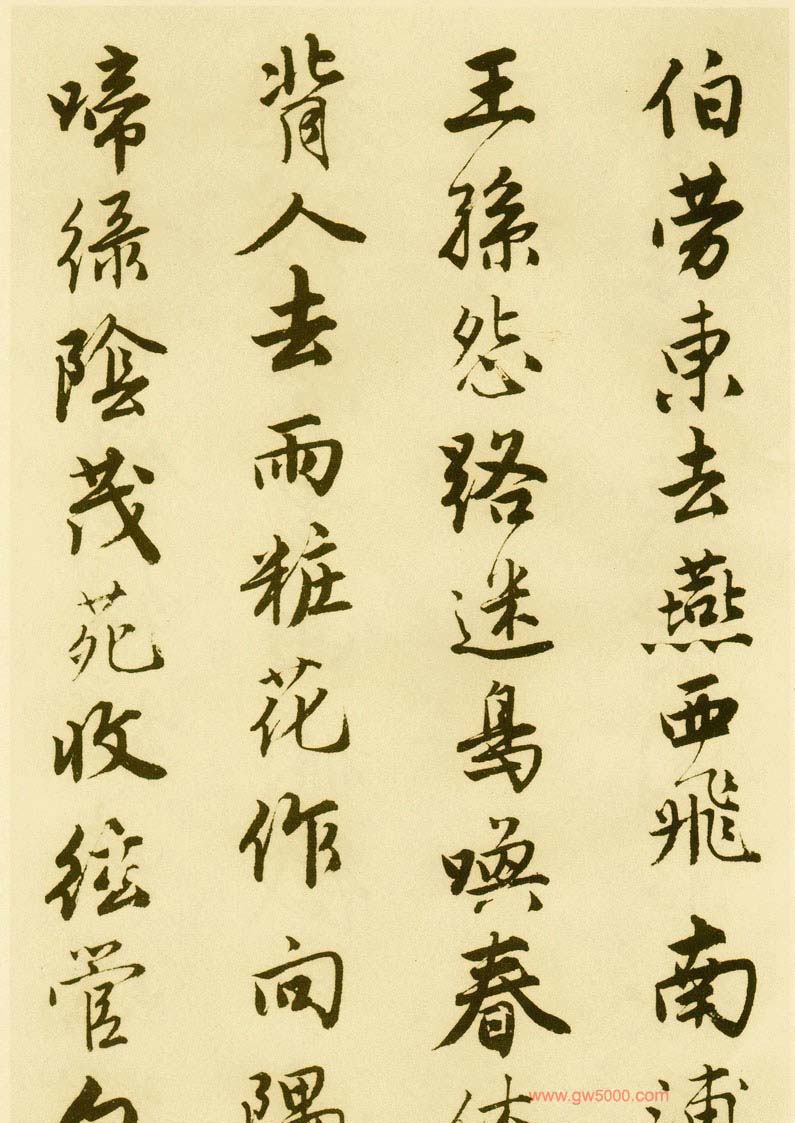 伯劳東去燕西飛南浦
王孫怨路迷鳥喚春休
背人去雨粧花作向隅
啼緑陰茂苑收絃管白
www.gw5000.com